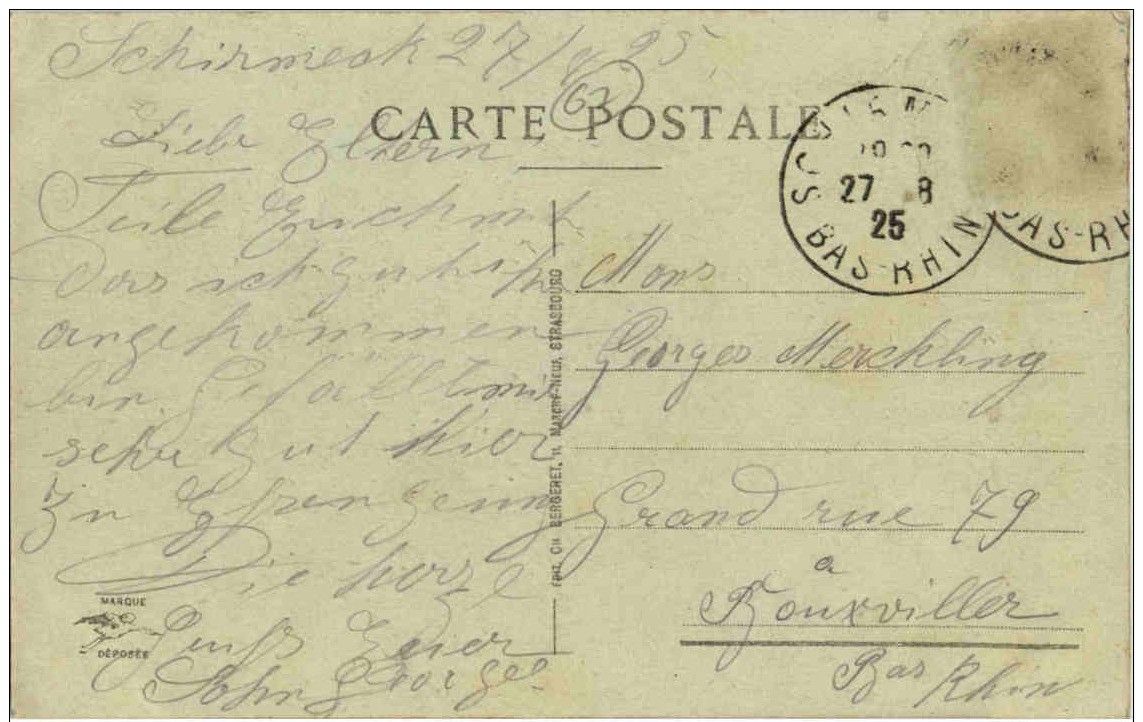 Schirmeck 27/8 25
63
CARTE POSTALE
Liebe Eltern
Teile Euch mit
das ich gut hir
angekommen
bin. Gefällt mir
sehr gut hier
in
Die herzl
Euer
Sohn George
MARQUE
DÉPOSÉE
EDIT. CH. BERGERET, 11, MARCHÉ-NEUF, STRASBOURG
27 8
25
BAS-RHIN
BAS-RH
Mons
Georges Merckling
Grand rue 79
a
Bouxviller
Bas Rhin